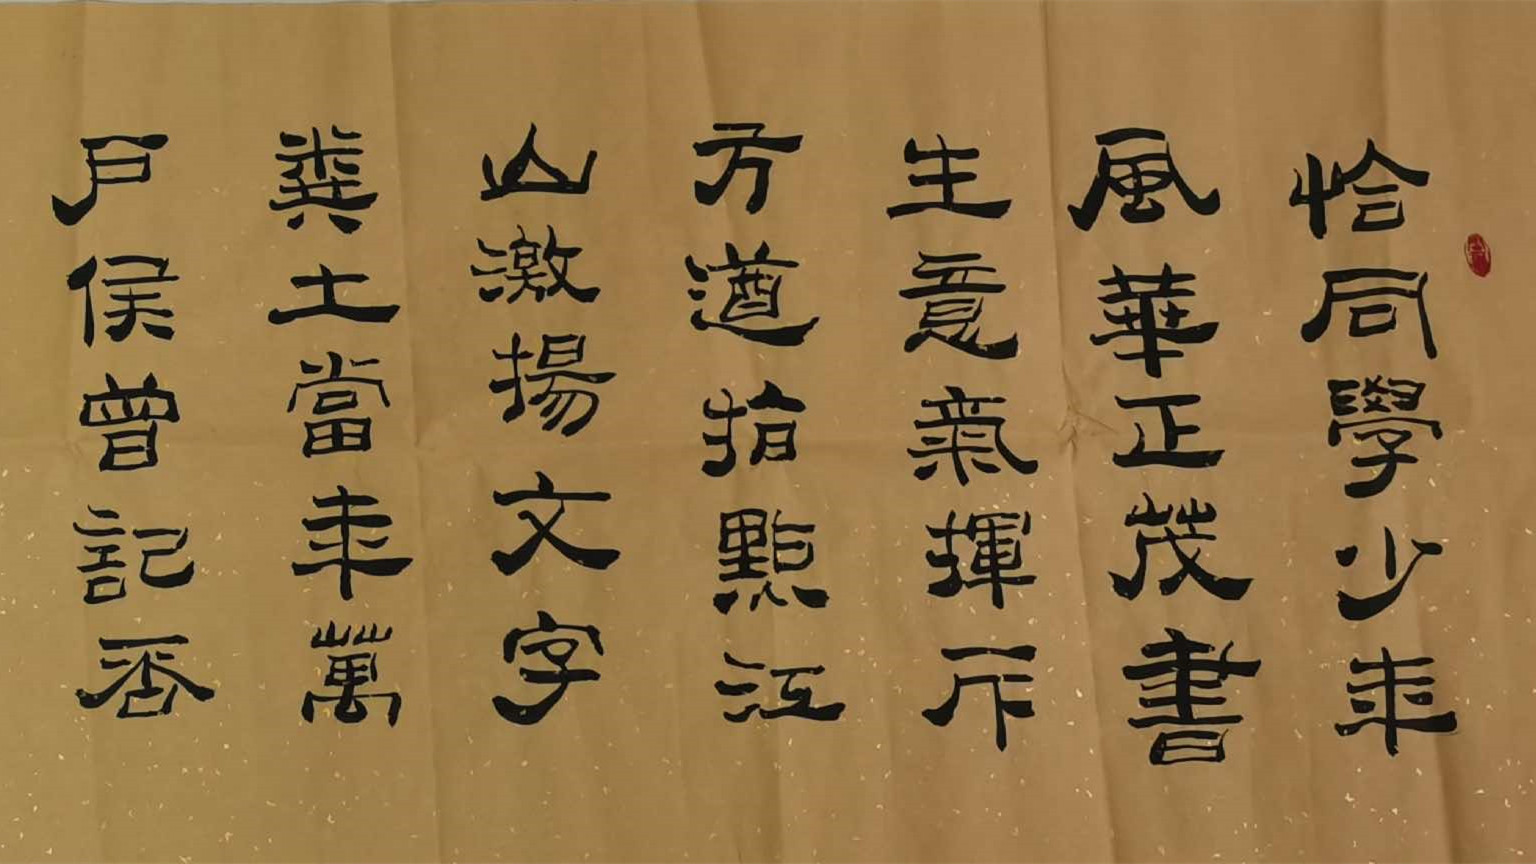 恰同學少年
風華正茂書
生意氣揮斥
方遒指點江
山激揚文字
糞土當年萬
戶侯曾記否